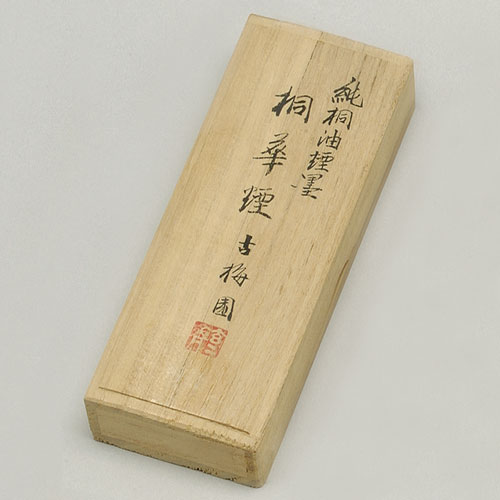 純桐油煙墨
桐華煙
古梅園